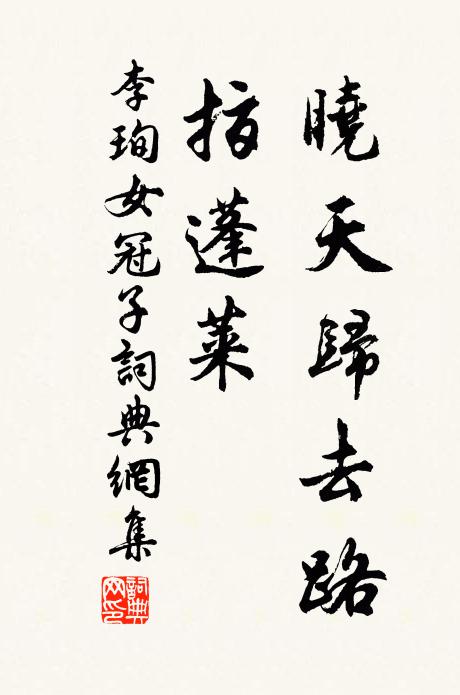 曉天歸去路
指蓬萊
李珣女冠子詞典網集
詞典网印